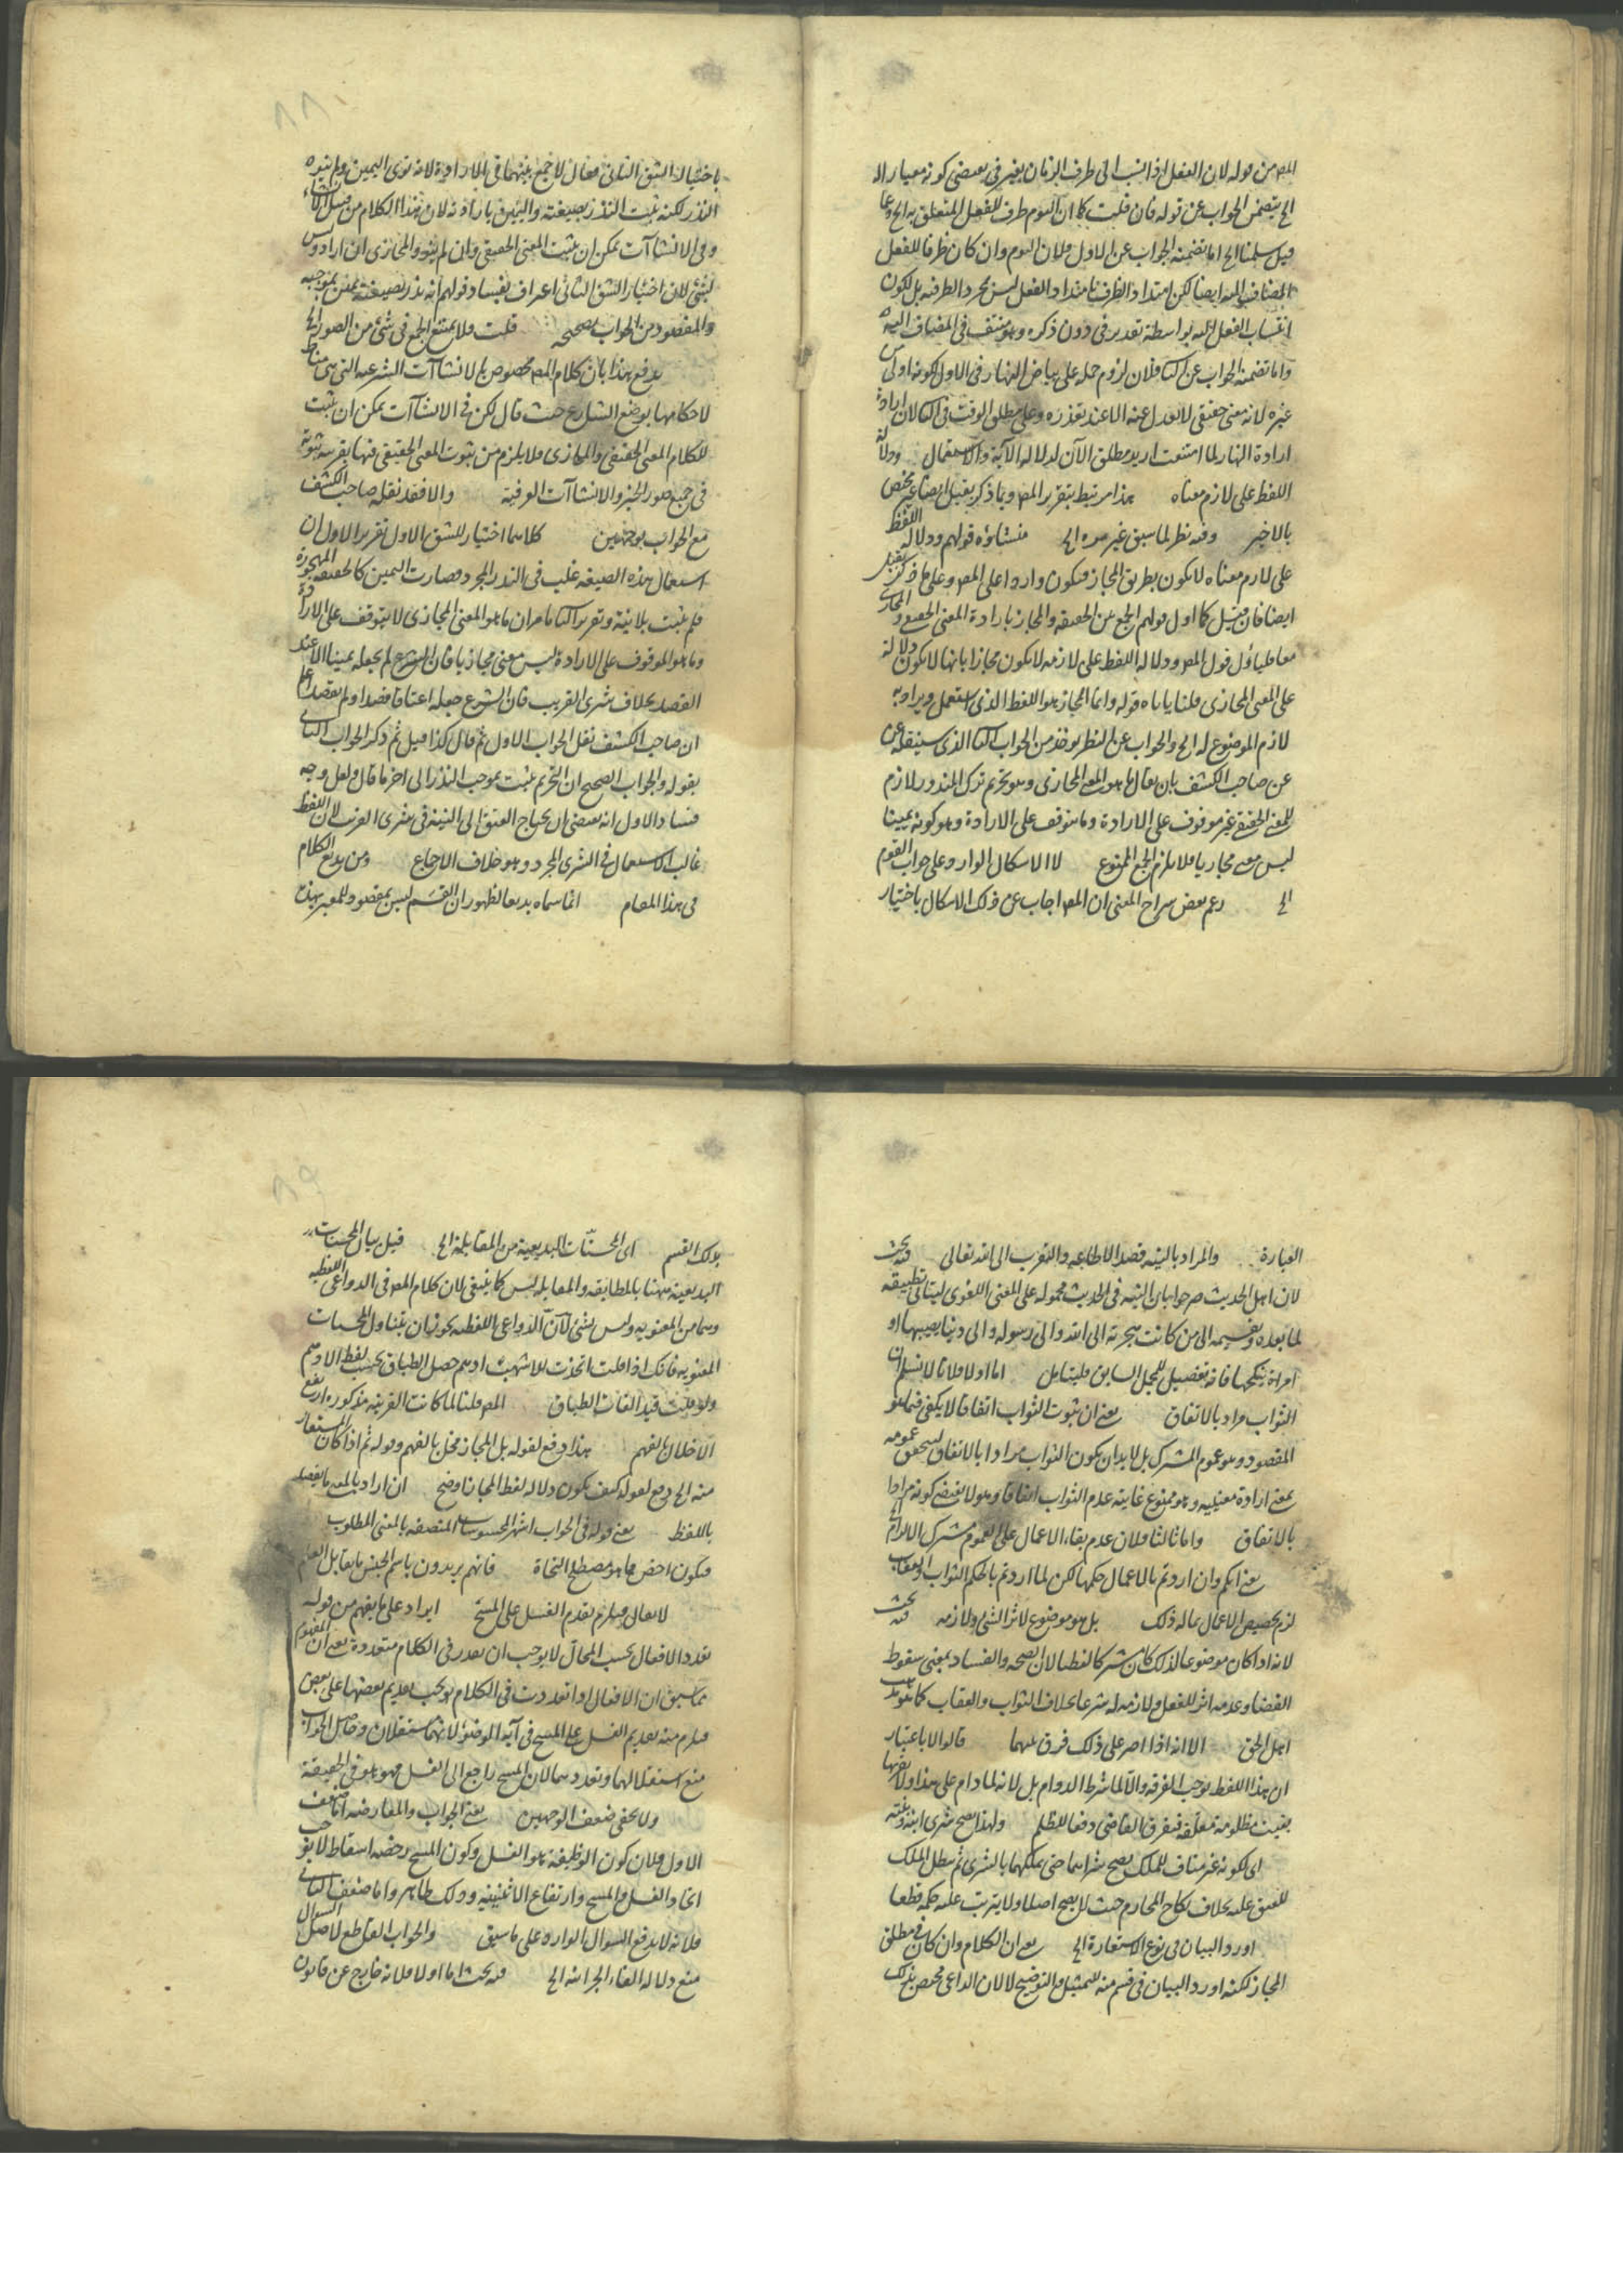 المص من قوله لان الفعل اذا نسب الى ظرف الزمان بغير في يقتضي كونه معيارا له
الخ يتضمن الجواب عن قوله فان قلت كما ان اليوم ظرف للفعل المتعلق به الخ وعما
قيل سلمنا الخ اما تضمنه الجواب عن الاول فلان اليوم وان كان ظرفا للفعل
المضاف اليه ايضا لكن امتداد الظرف بامتداد الفعل ليس بمجرد الظرفية بل لكون
انتساب الفعل اليه بواسطة تقدير في دون ذكره وهو منتف في المضاف اليه
واما تضمنه الجواب عن الثاني فلان لزوم حمله على بياض النهار في الاول لكونه اولى من
غيره لانه معنى حقيقي لا يعدل عنه الا عند تعذره وعلى مطلق الوقت في الثاني لان ارادة
ارادة النهار لما امتنعت اريد مطلق الآن لدلالة الآية والاستعمال ودلالة
اللفظ على لازم معناه هذا مرتبط بتقرير المص وما ذكر بقيل ايضا غير مختص
بالاخير وفيه نظر لما سبق غير مرة الخ منشاؤه قولهم ودلالة اللفظ
على لازم معناه لا يكون بطريق المجاز فيكون واردا على المص وعلى ما ذكر بقيل
ايضا فان قيل كما اول قولهم الجمع بين الحقيقة والمجاز بارادة المعنى الحقيقي والمجازي
معا فليأول قول المص ودلالة اللفظ على لازمه لا يكون مجازا بانها لا يكون دلالة
على المعنى المجازي قلنا ياباه قوله وانما المجاز هو اللفظ الذي استعمل ويراد به
لازم الموضوع له الخ والجواب عن النظر يوخذ من الجواب الثاني الذي سينقله عن
عن صاحب الكشف بان يقال ما هو المعنى المجازي وهو تحريم ترك المنذور لازم
للمعنى الحقيقي غير موقوف على الارادة وما يتوقف على الارادة وهو كونه يمينا
ليس معنى مجازيا فلا يلزم الجمع الممنوع لا الاشكال الوارد على جواب القوم
الخ زعم بعض شراح المغني ان المص اجاب عن ذلك الاشكال باختيار
باختيار الشق الثاني فقال لا جمع بينهما في الارادة لانه نوى اليمين ولم ينوه
النذر لكنه يثبت النذر بصيغته واليمين بارادته لان هذا الكلام من قبيل الانشاء
وفي الانشاآت يمكن ان يثبت المعنى الحقيقي وان لم ينو والمجازي ان اراد وليس
بشئ لان اختيار الشق الثاني اعتراف بفساد قولهم انه نذر بصيغته يمين بموجبه
والمقصود من الجواب تصحيحه قلت فلا يمتنع الجمع في شئ من الصور الخ
يدفع هذا بان كلام المص مخصوص بالانشاآت الشرعية التي هي مناط
لاحكامها بوضع الشارع حيث قال لكن في الانشاآت يمكن ان يثبت
للكلام المعنى الحقيقي والمجازي فلا يلزم من ثبوت المعنى الحقيقي فيها بقرينة ثبوته
في جميع صور الخبر والانشاآت العرفية والا فقد نقله صاحب الكشف
مع الجواب بوجهين كلاهما اختيار للشق الاول تقرير الاول ان
استعمال هذه الصيغة غلب في النذر المجرد فصارت اليمين كالحقيقة المهجورة
فلم يثبت بلا نية وتقرير الثاني ما مر ان ما هو المعنى المجازي لا يتوقف على الارادة
وما هو الموقوف على الارادة ليس معنى مجازيا فان الشرع لم يجعله يمينا الا عند
القصد بخلاف شرى القريب فان الشرع جعله اعتاقا قصد او لم يقصد اعلم
ان صاحب الكشف نقل الجواب الاول ثم قال كذا قيل ثم ذكر الجواب الثاني
بقوله والجواب الصحيح ان التحريم يثبت بموجب النذر الى اخر ما قال ولعل وجه
فساد الاول انه يقتضي ان يحتاج العتق الى النية في شرى القريب لان اللفظ
غالب الاستعمال في الشرى المجرد وهو خلاف الاجماع ومن بديع الكلام
في هذا المقام انما سماه بديعا لظهور ان القسم ليس بمقصود للمعبر بهذه
العبارة والمراد بالنية قصد الطاعة والتقرب الى الله تعالى فيه بحث
لان اهل الحديث صرحوا بان النية في الحديث محمولة على المعنى اللغوي ليتاتى تطبيقه
لما بعده وتقسيمه الى من كانت هجرته الى الله والى رسوله والى دنيا يصيبها او
امراة ينكحها فانه تفصيل للمجمل السابق فليتامل اما اولا فلانا لا نسلم ان
الثواب مراد بالاتفاق يعني ان ثبوت الثواب اتفاقا لا يكفي فيما هو
المقصود وهو عموم المشترك بل لا بد ان يكون الثواب مرادا بالاتفاق ليتحقق عمومه
بمعنى ارادة معنييه وهو ممنوع غايته عدم الثواب اتفاقا وهو لا يقتضي كونه مرادا
بالاتفاق واما ثالثا فلان عدم بقاء الاعمال على العموم مشترك الالزام الخ
يعني انكم وان اردتم بالاعمال حكمها لكن لما اردتم بالحكم الثواب والعقاب
لزم تخصيص الاعمال بما له ذلك بل هو موضوع لاثر الشئ ولازمه فيه بحث
لانه اذا كان موضوعا لذلك كان مشتركا لفظيا لان الصحة والفساد بمعنى سقوط
القضاء وعدمه اثر للفعل ولازمه له شرعا بخلاف الثواب والعقاب كما هو مذهب
اهل الحق الا انه اذا اصر على ذلك فرق بينهما قالوا لا باعتبار
ان هذا اللفظ يوجب الفرقة والا لما شرط الدوام بل لانه لما دام على هذا ولا يقربها
بقيت مظلومة معلقة فيفرق القاضي دفعا للظلم ولهذا يصح شرى ابنه وبنته
اي لكونه غير مناف للملك يصح شراهما حتى يملكهما بالشرى ثم يبطل الملك
للعتق عليه بخلاف نكاح المحارم حيث لا يصح اصلا ولا يترتب عليه حكمه قطعا
اورد البيان في نوع الاستعارة الخ يعني ان الكلام وان كان في مطلق
المجاز لكنه اورد البيان في قسم منه للتمثيل والتوضيح لا لان الداعي مختص بذلك
بذلك القسم اي المحسنات البديعية من المقابلة الخ قيل بيان المحسنات
البديعية ههنا بالمطابقة والمقابلة ليس كما ينبغي لان كلام المص في الدواعي اللفظية
وهما من المعنوية وليس بشئ لان الدواعي اللفظية يجوز ان يتناول المحسنات
المعنوية فانك اذا قلت اتخذت للاشهب ادهم حصل الطباق بحسب لفظ الادهم
ولو قلت قيد الفات الطباق المص قلنا لما كانت القرينة مذكورة ارتفع
الاخلال بالفهم هذا دفع لقوله بل المجاز مخل بالفهم وقوله ثم اذا كان المستعار
منه الخ دفع لقوله كيف يكون دلالة لفظ المجاز اوضح ان اراد بالمعنى ما يقصد
باللفظ يعني قوله في الجواب اشهر المحسوسات المتصفة بالمعنى المطلوب
فيكون اخص مما هو مصطلح النحاة فانهم يريدون باسم الجنس ما يقابل العلم
لا يقال فيلزم تقدم الغسل على المسح ايراد على ما يفهم من قوله
تعدد الافعال بحسب المحال لا يوجب ان يقدر في الكلام متعددة يعني ان المفهوم
مما سبق ان الافعال اذا تعددت في الكلام يوجب تقديم بعضها على بعض
فيلزم منه تقديم الغسل على المسح في آية الوضوء لانهما مستقلان وحاصل الجواب
منع استقلالهما وتعددهما لان المسح راجع الى الغسل فهو هو في الحقيقة
ولا يخفى ضعف الوجهين يعني الجواب والمعارضة اما ضعف
الاول فلان كون الوظيفة هو الغسل وكون المسح رخصة اسقاط لا يوجب
اتحاد الغسل والمسح وارتفاع الاثنينية وذلك ظاهر واما ضعف الثاني
فلانه لا يدفع السوال الوارد على ما سبق والجواب القاطع لاصل السوال
منع دلالة الفاء الجزائية الخ فيه بحث اما اولا فلانه خارج عن قانون